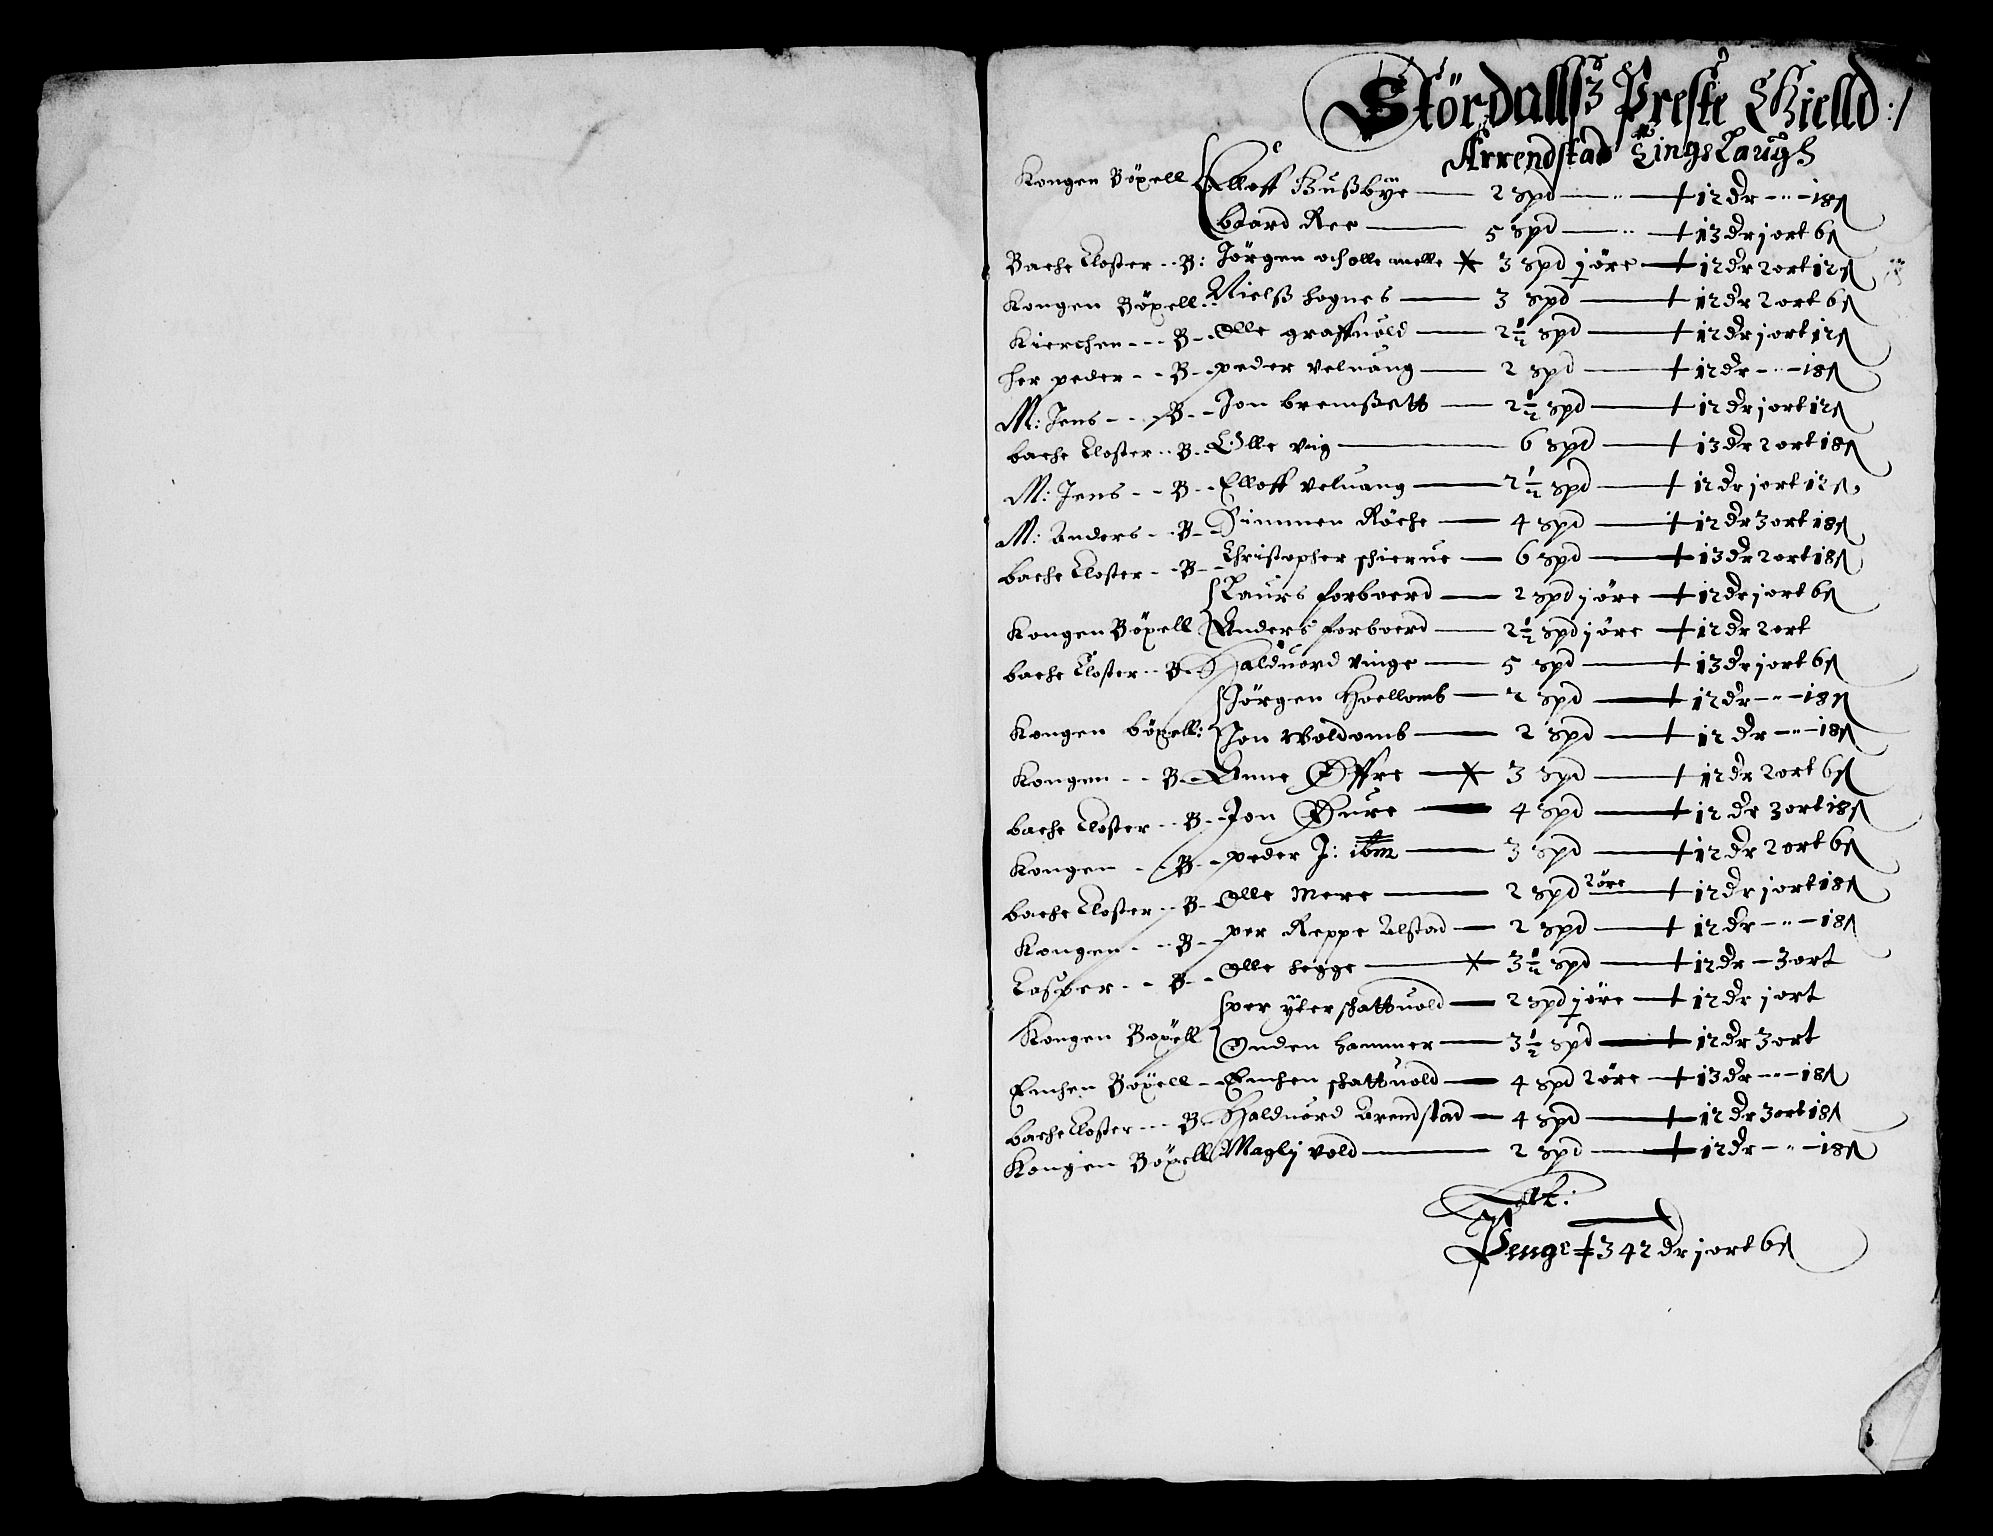 Stördallß Preste Gielld:/
Arrendstad Tings Laugh
Kongen Böxell Elloff Hußbÿe — 2 spd — „ — 12 dr - „ - 18 s
baard Ree — 5 spd — „ — 13 dr j ort 6 s
Bache Closter - - B: Jörgen och olle melle — 3 spd j öre — 12 dr 2 ort 12 s
Kongen Böxell: Nielß hognes — 3 spd — 12 dr 2 ort 6 s
Kierchen - - - B - Olle graffuold — 2½ spd — 12 dr j ort 12 s
her peder - - B - peder veluang — 2 spd — 12 dr - „ - 18 s
M: Jens - - - B - Jon bremßett — 2½ spd — 12 dr j ort 12 s
bache Closter - - B - Olle viig — 6 spd — 13 dr 2 ort 18 s
M: Jens - - B - Elloff veluang — 2½ spd — 12 dr j ort 12 s
M: Anders - - B - Simmen Röche — 4 spd — 12 dr 3 ort 18 s
bache Closter - - B - Christopher schierue — 6 spd — 13 dr 2 ort 18 s
Laurs forboerd — 2 spd j öre — 12 dr j ort 6 s
Kongen Böxell Anders forboerd — 2½ spd j öre — 12 dr 2 ort
bache Closter - - B - Halduord vinge — 5 spd — 13 dr j ort 6 s
Jörgen Hoellomb — 2 spd — 12 dr - „ - 18 s
Kongen böxell: Jon Woldomb — 2 spd — 12 dr - „ - 18 s
Kongen - - B - Anne Öffre — 3 spd — 12 dr 2 ort 6 s
bache Closter - - B - Jon — 4 spd — 12 dr 3 ort 18 s
Kongen - - B - peder J: ibm — 3 spd — 12 dr 2 ort 6 s
bache Closter - - B - Olle Mere — 2 spd 2 öre — 12 dr j ort 18 s
Kongen - - B - per Reppe Alstad — 2 spd — 12 dr - „ - 18 s
Casper - - B - Olle hegge — 3½ spd — 12 dr - 3 ort
per ytterschattuold — 2 spd j öre — 12 dr j ort
Kongen Boxell Onden hammer — 3½ spd — 12 dr 3 ort
Enchen Böxell - Enchen schattuold — 4 spd 2 öre — 13 dr - „ - 18 s
bache Closter - - - B - Halduord Arendstad — 4 spd — 12 dr 3 ort 18 s
Kongen Böxell Maglj vold — 2 spd — 12 dr - „ - 18 s
Penge 342 dr j ort 6 s